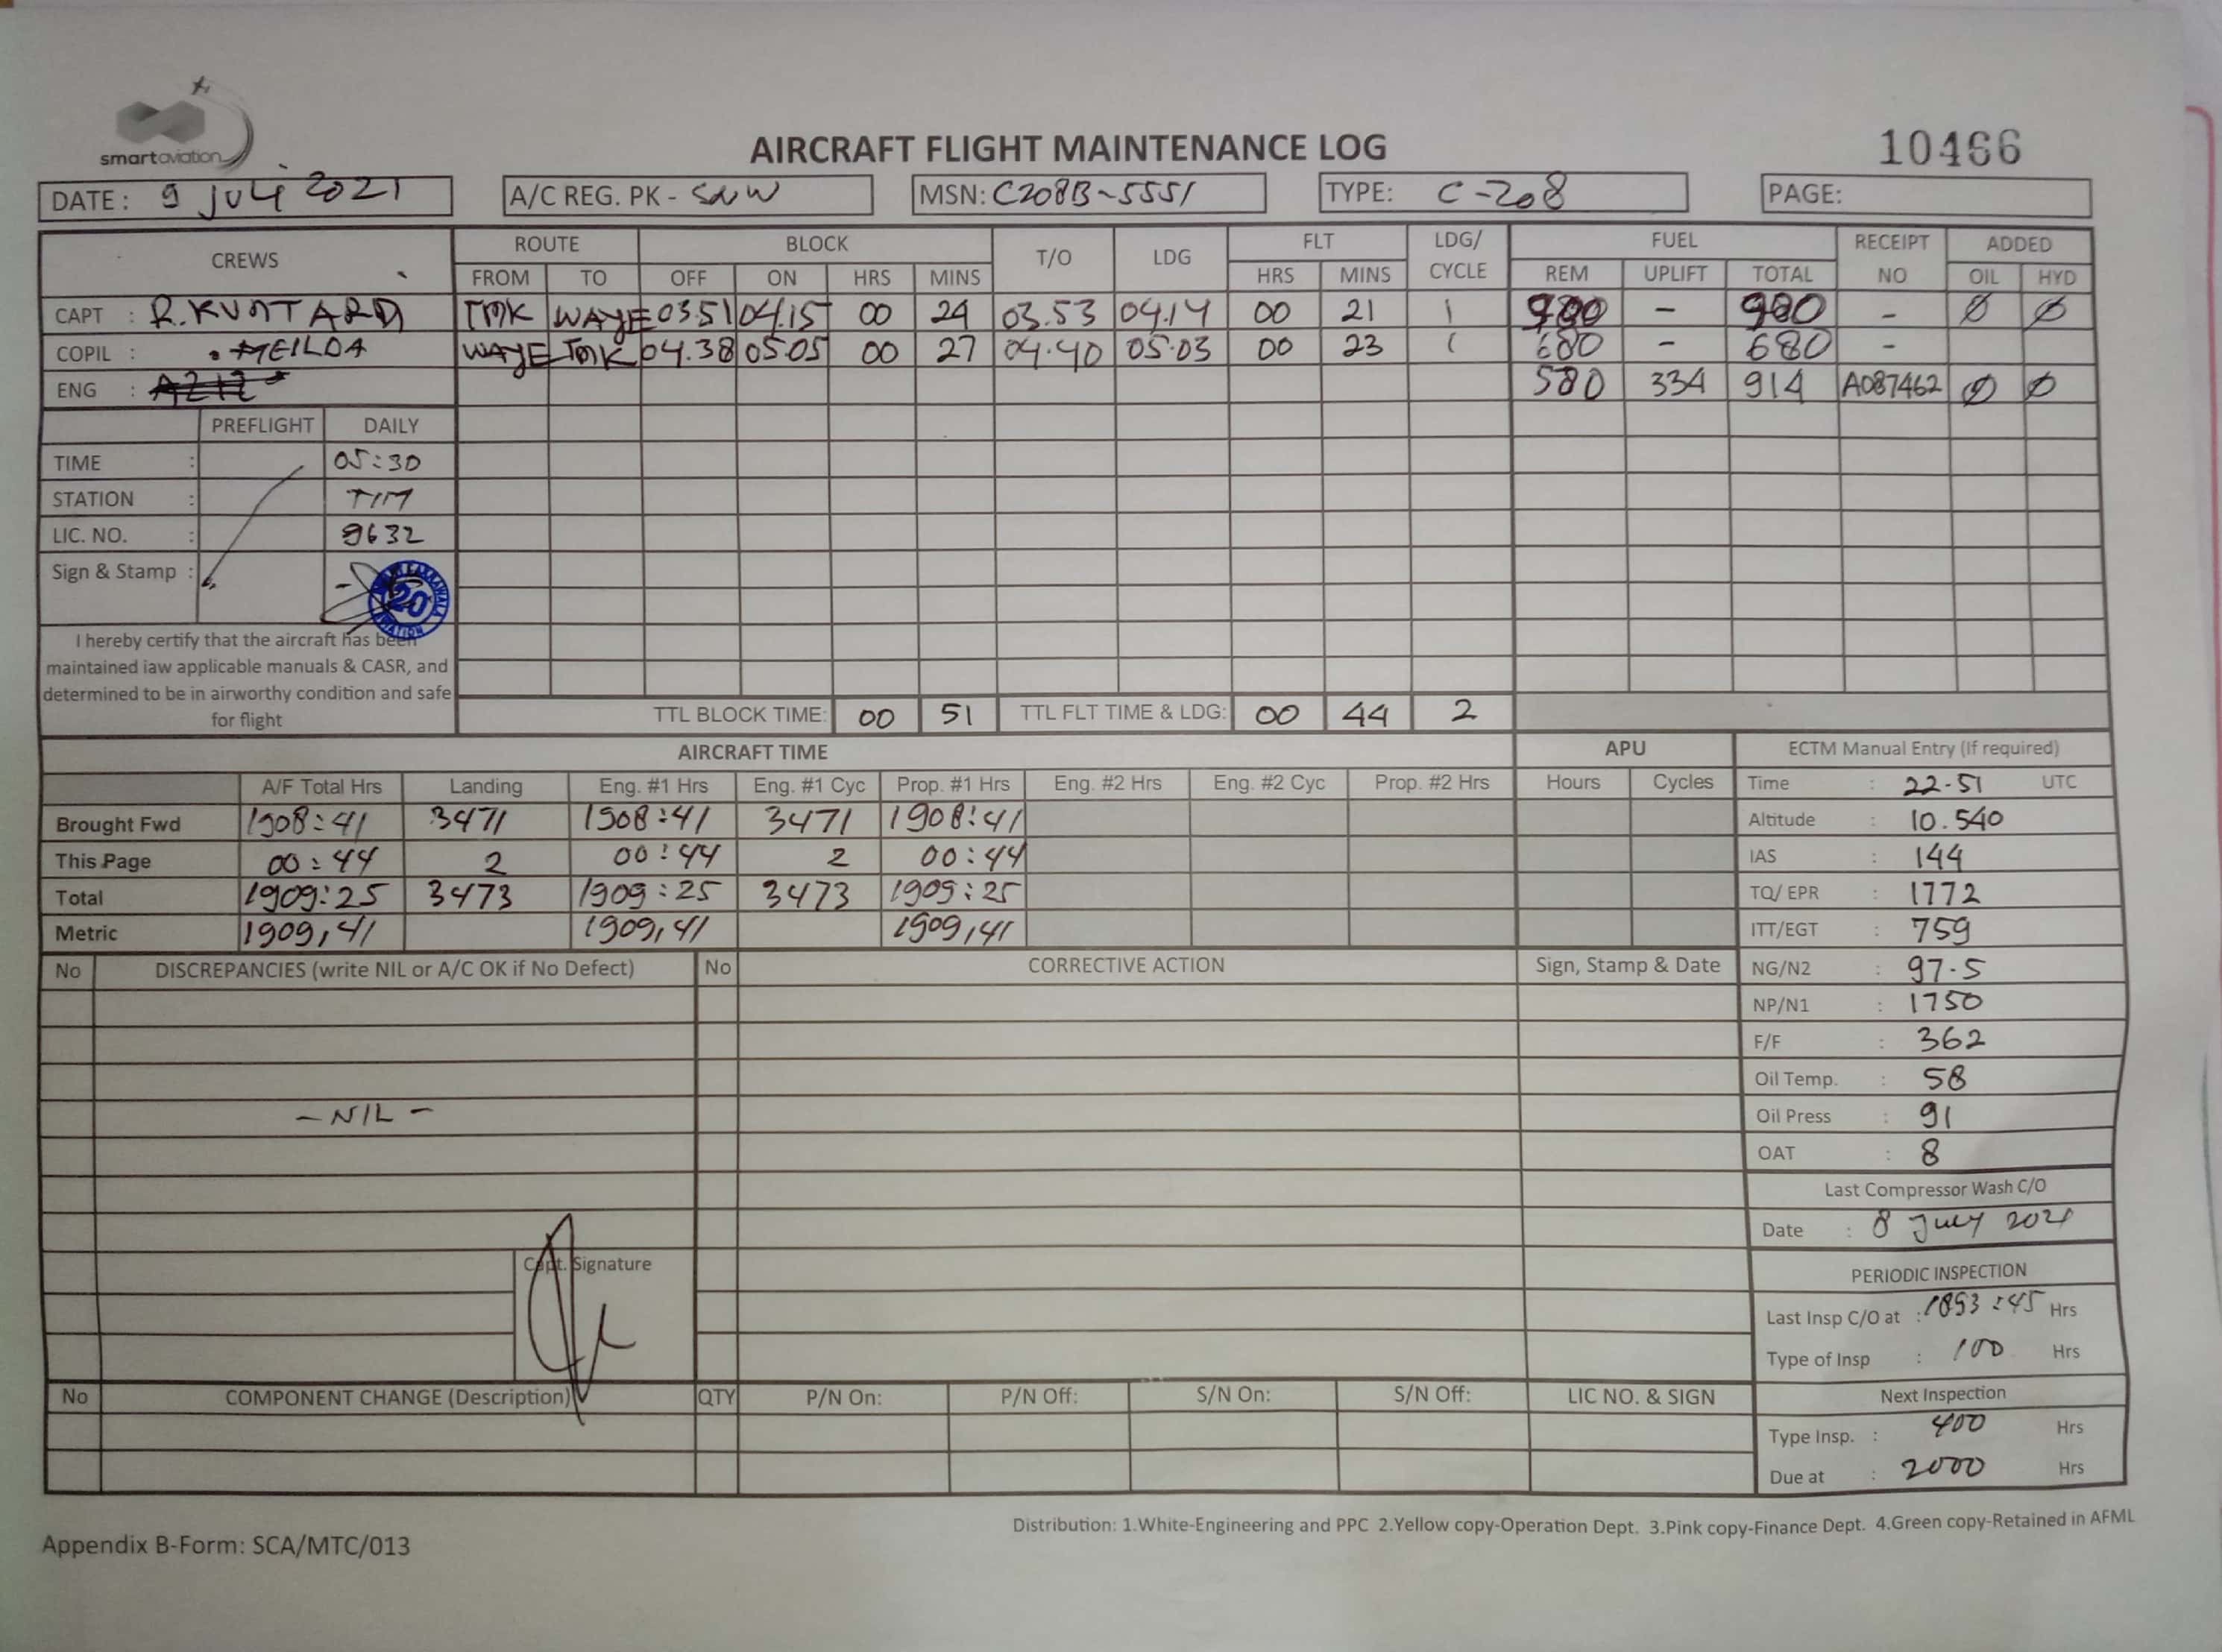 smartaviation
AIRCRAFT FLIGHT MAINTENANCE LOG
10466
DATE: 9 JULI 2021 A/C REG. PK - SNW MSN: C208B-5551 TYPE: C-208 PAGE:
CREWS ROUTE BLOCK T/O LDG FLT LDG/ CYCLE FUEL RECEIPT NO ADDED
FROM TO OFF ON HRS MINS HRS MINS REM UPLIFT TOTAL OIL HYD
CAPT : TMK WAYE 03.51 04.15 00 24 03.53 04.14 00 21 1 - - Ø Ø
COPIL : MEILDA WAYE TMK 04.38 05.05 00 27 04.40 05.03 00 23 1 680 - 680 -
ENG : 580 334 914 A087462 Ø Ø
PREFLIGHT DAILY
TIME : 05:30
STATION : TIM
LIC. NO. : 9632
Sign & Stamp :
20
I hereby certify that the aircraft has been
maintained iaw applicable manuals & CASR, and
determined to be in airworthy condition and safe
for flight
TTL BLOCK TIME: 00 51 TTL FLT TIME & LDG: 00 44 2
AIRCRAFT TIME APU ECTM Manual Entry (If required)
A/F Total Hrs Landing Eng. #1 Hrs Eng. #1 Cyc Prop. #1 Hrs Eng. #2 Hrs Eng. #2 Cyc Prop. #2 Hrs Hours Cycles Time : 22.51 UTC
Brought Fwd 1908:41 3471 1908:41 3471 1908:41 Altitude : 10.540
This Page 00:44 2 00:44 2 00:44 IAS : 144
Total 1909:25 3473 1909:25 3473 1909:25 TQ/ EPR : 1772
Metric 1909,41 1909,41 1909,41 ITT/EGT : 759
No DISCREPANCIES (write NIL or A/C OK if No Defect) No CORRECTIVE ACTION Sign, Stamp & Date NG/N2 : 97.5
NP/N1 : 1750
F/F : 362
Oil Temp. : 58
- NIL - Oil Press : 91
OAT : 8
Last Compressor Wash C/O
Date : 8 July 2021
Capt. Signature
PERIODIC INSPECTION
Last Insp C/O at : 1893:45 Hrs
Type of Insp : 100 Hrs
No COMPONENT CHANGE (Description) QTY P/N On: P/N Off: S/N On: S/N Off: LIC NO. & SIGN Next Inspection
Type Insp. : 400 Hrs
Due at : 2000 Hrs
Distribution: 1.White-Engineering and PPC 2.Yellow copy-Operation Dept. 3.Pink copy-Finance Dept. 4.Green copy-Retained in AFML
Appendix B-Form: SCA/MTC/013